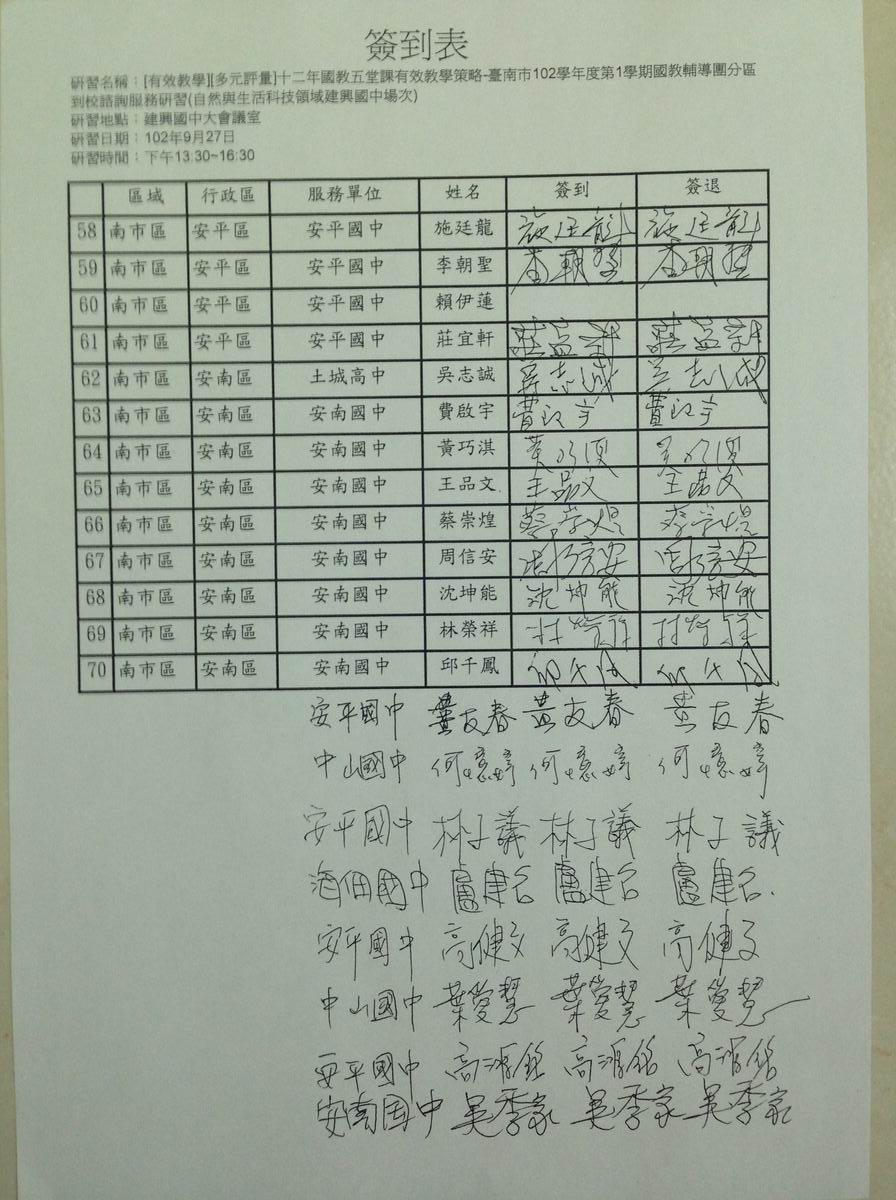 簽到表
研習名稱：[有效教學][多元評量]十二年國教五堂課有效教學策略-臺南市102學年度第1學期國教輔導團分區
到校諮詢服務研習(自然與生活科技領域建興國中場次)
研習地點：建興國中大會議室
研習日期：102年9月27日
研習時間：下午13:30~16:30
區域 行政區 服務單位 姓名 簽到 簽退
58 南市區 安平區 安平國中 施廷龍 施廷龍 施廷龍
59 南市區 安平區 安平國中 李朝聖 李朝聖 李朝聖
60 南市區 安平區 安平國中 賴伊蓮
61 南市區 安平區 安平國中 莊宜軒 莊宜軒 莊宜軒
62 南市區 安南區 土城高中 吳志誠 吳志誠 吳志誠
63 南市區 安南區 安南國中 費啟宇 費啟宇 費啟宇
64 南市區 安南區 安南國中 黃巧淇 黃巧淇 黃巧淇
65 南市區 安南區 安南國中 王品文 王品文 王品文
66 南市區 安南區 安南國中 蔡崇煌 蔡崇煌 蔡崇煌
67 南市區 安南區 安南國中 周信安 周信安 周信安
68 南市區 安南區 安南國中 沈坤能 沈坤能 沈坤能
69 南市區 安南區 安南國中 林榮祥 林榮祥 林榮祥
70 南市區 安南區 安南國中 邱千鳳 邱千鳳 邱千鳳
安平國中 黃友春 黃友春 黃友春
中山國中 何憶婷 何憶婷 何憶婷
安平國中 林子議 林子議 林子議
海佃國中 盧建名 盧建名 盧建名
安平國中 高健文 高健文 高健文
中山國中 葉愛慧 葉愛慧 葉愛慧
安平國中 高鴻銘 高鴻銘 高鴻銘
安南国中 吳季家 吳季家 吳季家